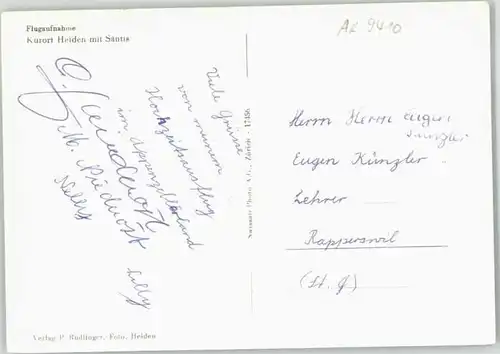 Flugaufnahme
Kurort Heiden mit Säntis
AK 9410
Viele Grüsse
von meinem
Hochzeitsausflug
im Appenzellerland
Nelly
Lilly
Swissair-Photo A.G., Zürich - 17456
Herrn Herrn Eugen
Künzler
Eugen Künzler
Lehrer
Rapperswil
(St. G)
Verlag P. Rüdlinger, Foto, Heiden